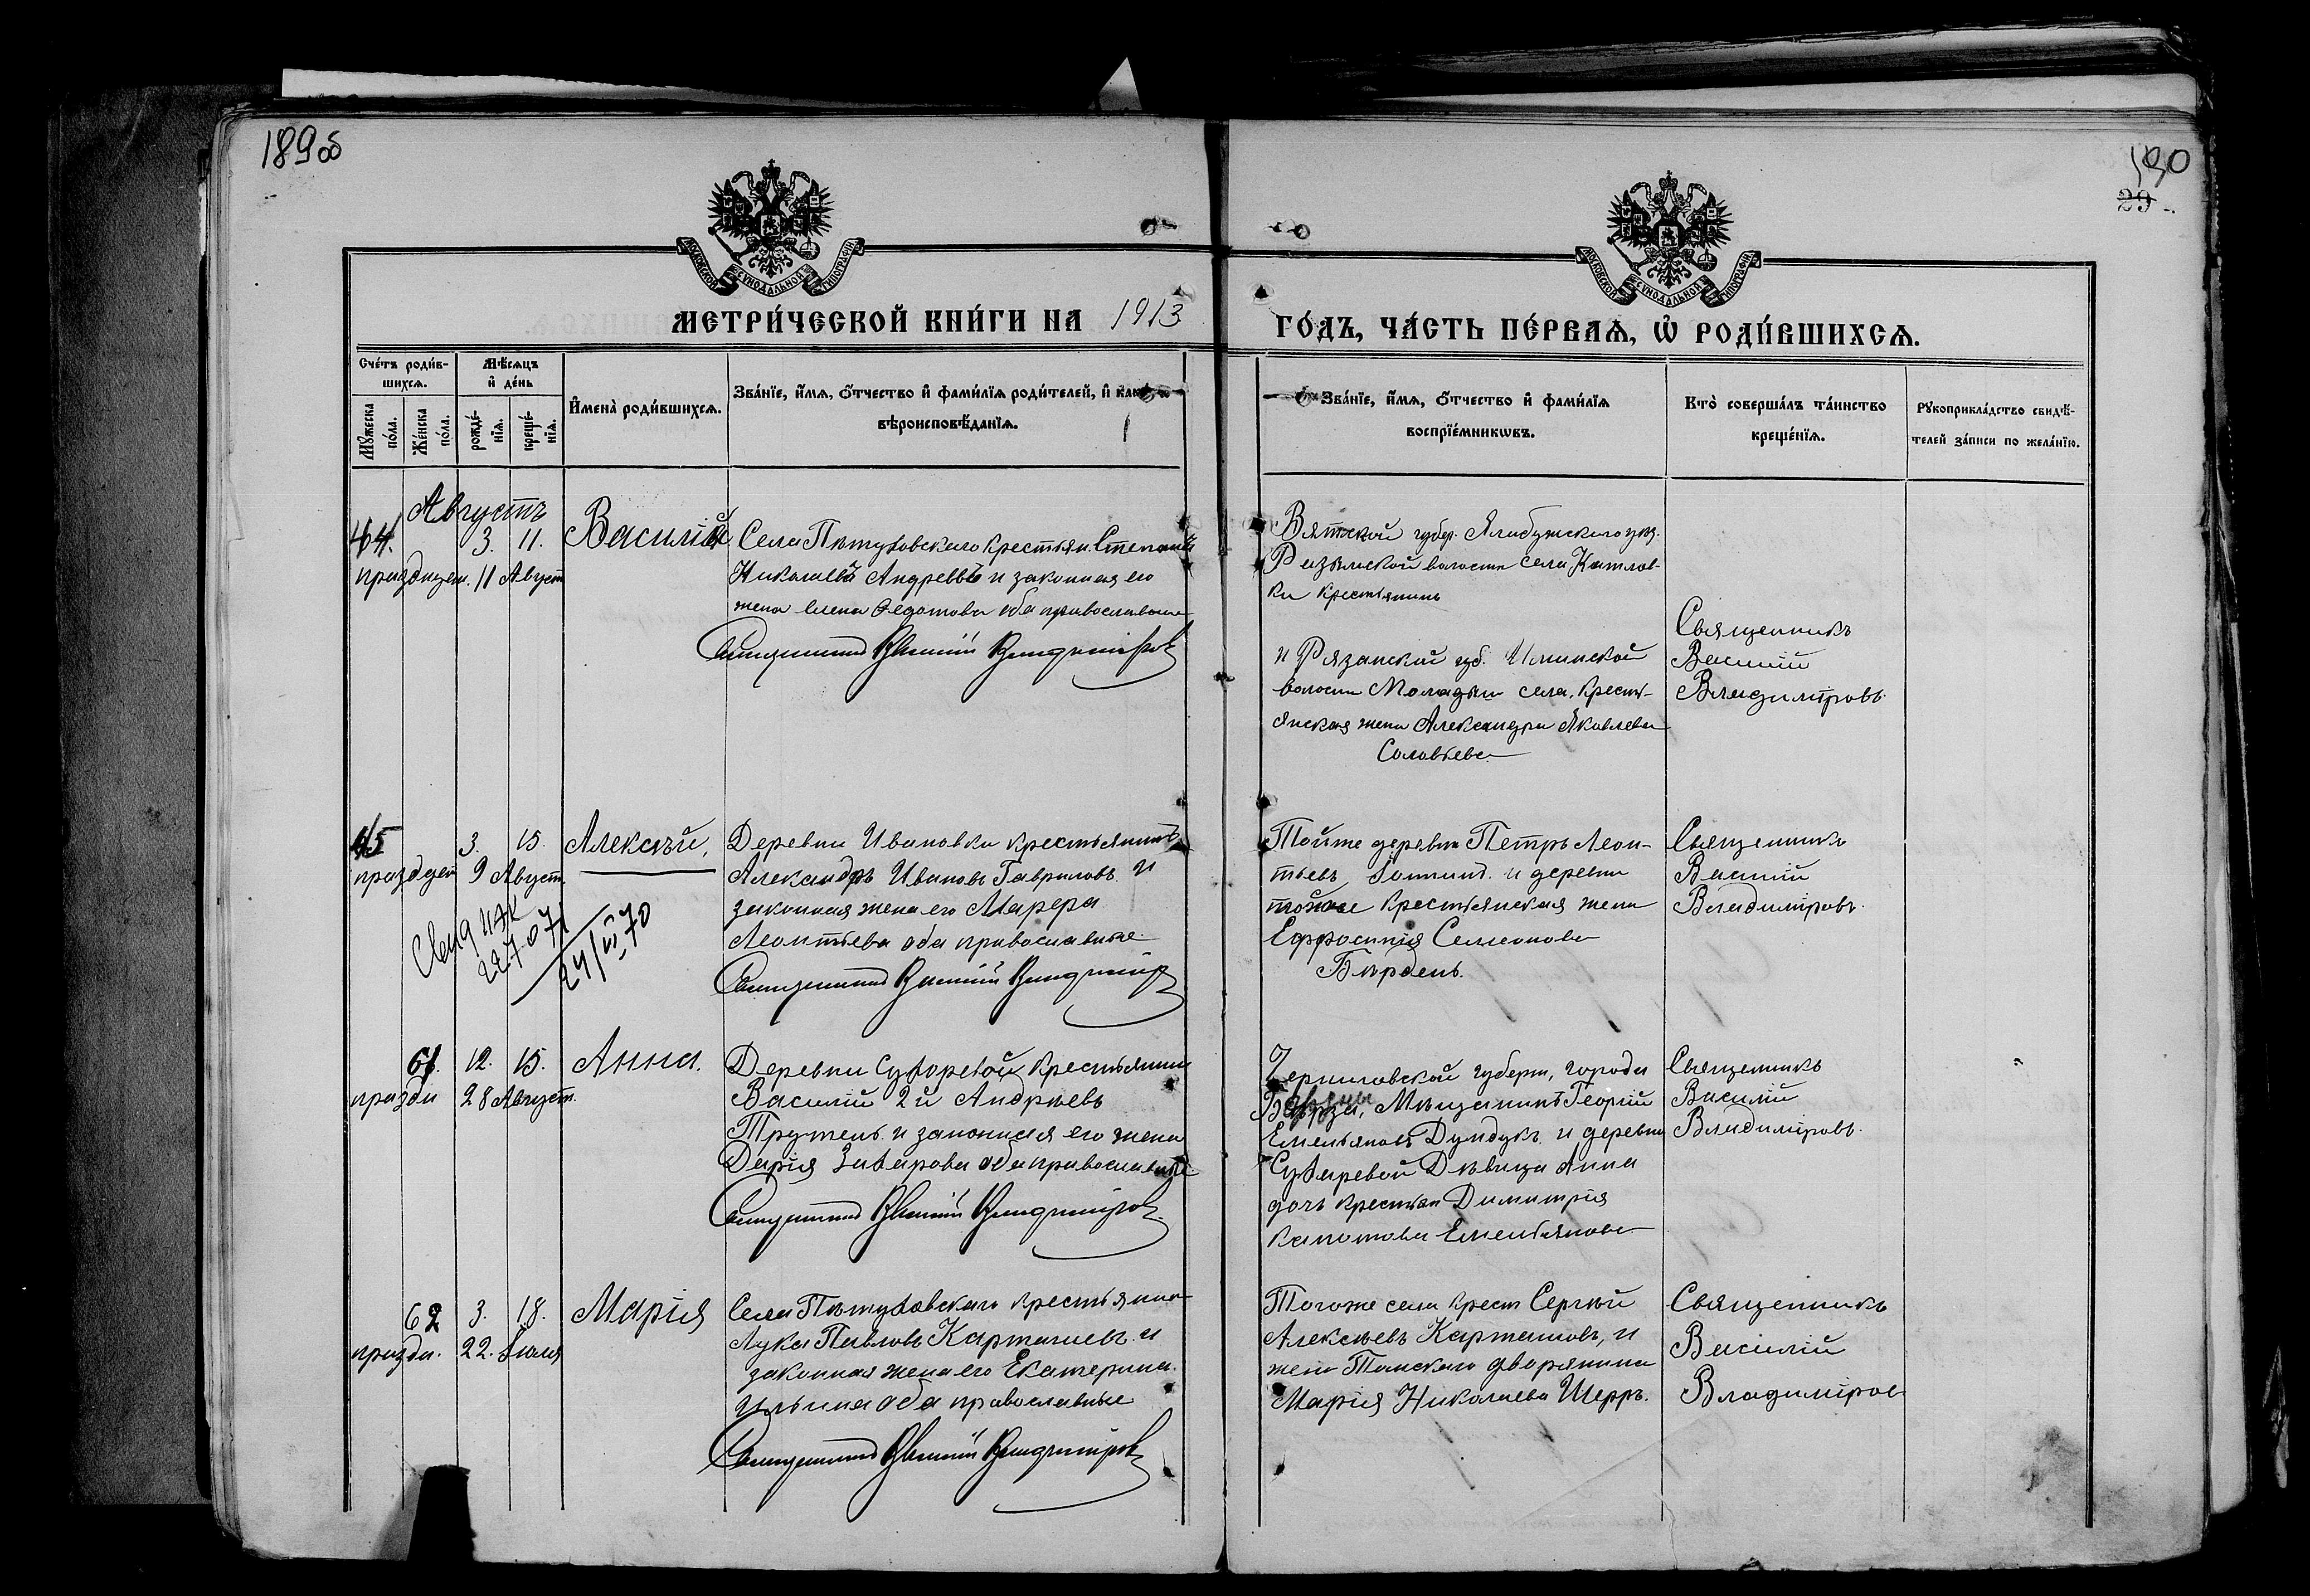 189 об
190
29
МОСКОВСКОЙ СѴНОДАЛЬНОЙ ТИПОГРАФІИ
МОСКОВСКОЙ СѴНОДАЛЬНОЙ ТИПОГРАФІИ
МЕТРИ́ЧЕСКОЙ КНИ́ГИ НА 1913
ГО́ДЪ, ЧА́СТЬ ПЕ́РВАѦ, Ѡ҆ РОДИ́ВШИХСѦ.
Сче́тъ роди́в-
шихсѧ.
Мѣ́сѧцъ
и҆ де́нь
Мꙋ́жеска
по́ла.
Же́нска
по́ла.
рожде́-
нїѧ.
креще́-
нїѧ.
И҆мена̀ роди́вшихсѧ.
Зва́нїе, и҆́мѧ, ѻ҆́тчество и҆ фами́лїѧ роди́телей, и҆
вѣроисповѣ́данїѧ.
Зва́нїе, и҆́мѧ, ѻ҆́тчество и҆ фами́лїѧ
воспрїе́мникѡвъ.
Кто̀ соверша́лъ та́инство
креще́нїѧ.
Рꙋкоприкла́дство свидѣ́-
телей за́писи по жела́нїю.
Августъ
44. 3. 11. Василій
11 Август
Села Пѣтуховскаго крестьян. Степанъ
Николаевъ Андреевъ и законная его
жена Елена Федотова оба православные
Священникъ Василій Владиміровъ
Вятской губер. Елабужскаго уез.
волости села Котлов-
ки крестьянинъ
и Рязанской губ.
волости села, кресть-
янская жена Александра Яковлева
Соловьева
Священникъ
Василій
Владиміровъ.
45 3. 15. Алексѣй,
9 Август.
24/III 70
Деревни Ивановки крестьянинъ
Александръ Ивановъ Гавриловъ и
законная жена его Марфа
Леонтьева оба православные
Священникъ Василій Владиміровъ
Тойже деревни Петръ Леон-
тьевъ и деревни
тойже крестьянская жена
Ефросинія Семенова
Бѣрдень.
Священникъ
Василій
Владиміровъ.
61. 12. 15. Анна.
праздн 28 Август.
Деревни Сухоревой крестьянин
Василій 2й Андрѣевъ
Трутень и законная его жена
Дарія Захарова оба православные
Священникъ Василій Владиміровъ
Черниговской губерн, города
Мѣщанинъ Георгій
Емельяновъ Дундукъ и деревни
Сухаревой Дѣвица Анна
дочь крестьян Димитрія
Емельянова
Священникъ
Василій
Владиміровъ.
62 3. 18. Марія
праздн. 22. Іюля
Села Пѣтуховскаго крестьянин
Лука Павловъ Карташевъ и
законная жена его Екатерина
Ильина оба православные
Священникъ Василій Владиміровъ
Тогоже села крест Сергѣй
Алексѣевъ Карташовъ, и
жена Томскаго дворянина
Марія Николаева Шерръ.
Священникъ
Василій
Владиміров